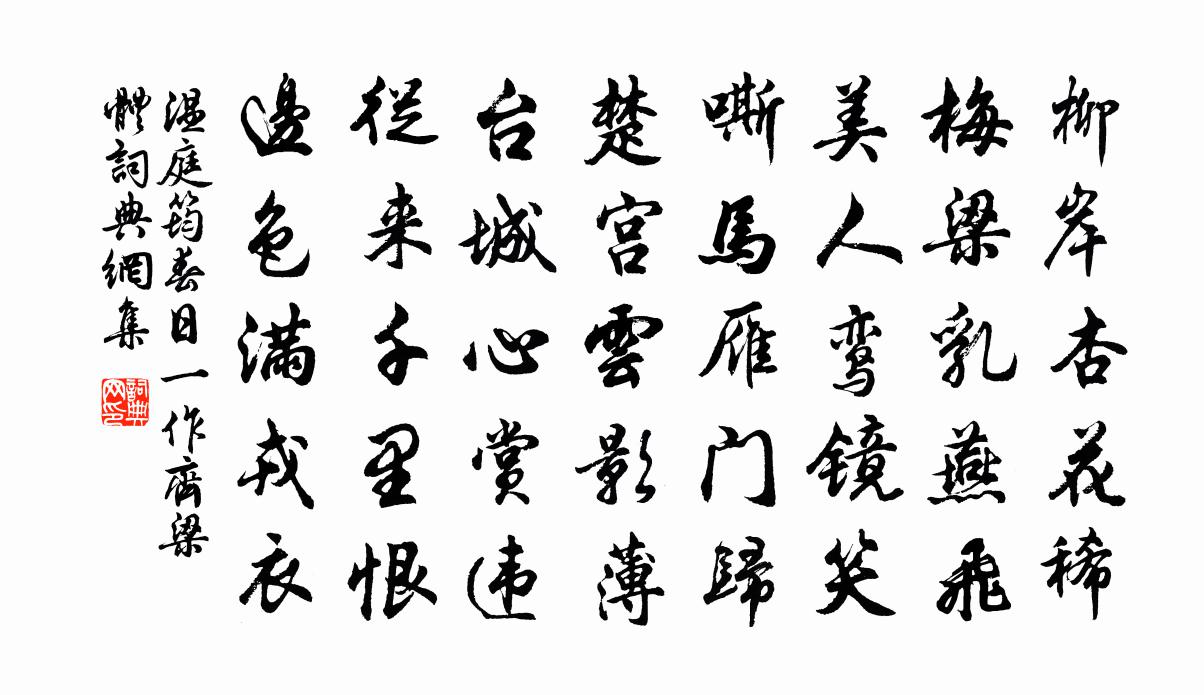 柳岸杏花稀
梅梁乳燕飛
美人鸾镜笑
嘶馬雁门歸
楚宫雲影薄
台城心赏违
從来千里恨
邊色滿戎衣
温庭筠春日一作齊梁
體詞典網集
詞典
网印